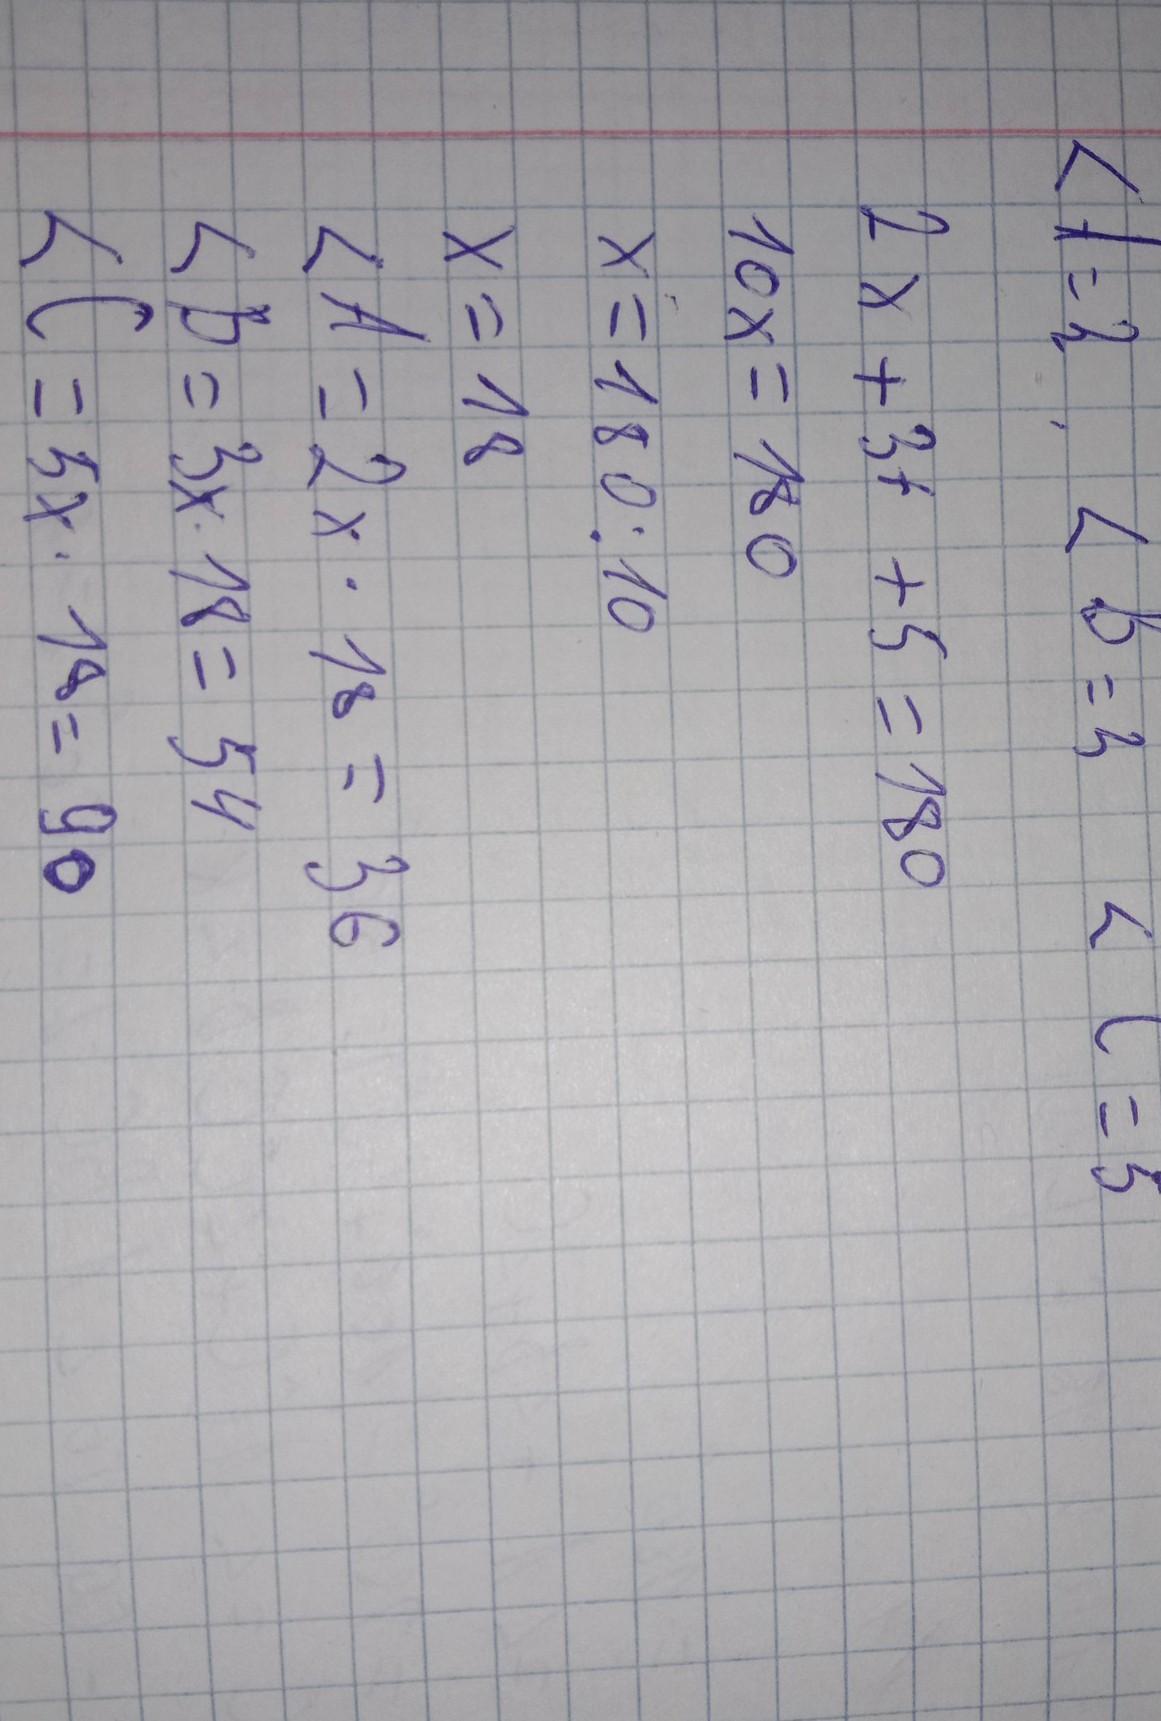 ∠A=2, ∠b=3 ∠C=5
2x+3x+5=180
10x=180
x=180:10
x=18
∠A=2x·18=36
∠B=3x·18=54
∠C=5x·18=90